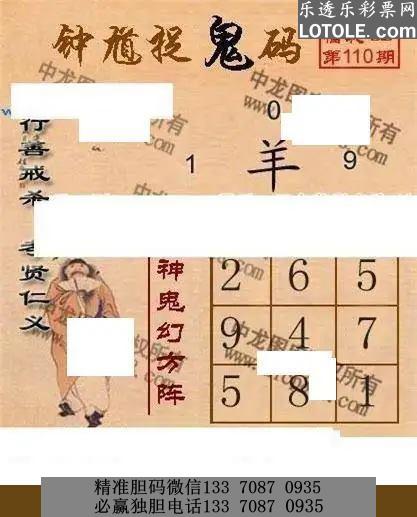 乐透乐彩票网
LOTOLE.COM
钟馗捉鬼码
第110期
0
1 羊 9
行善戒杀
孝贤仁义
神鬼幻方阵
2 6 5
9 4 7
5 8 1
精准胆码微信133 7087 0935
必赢独胆电话133 7087 0935